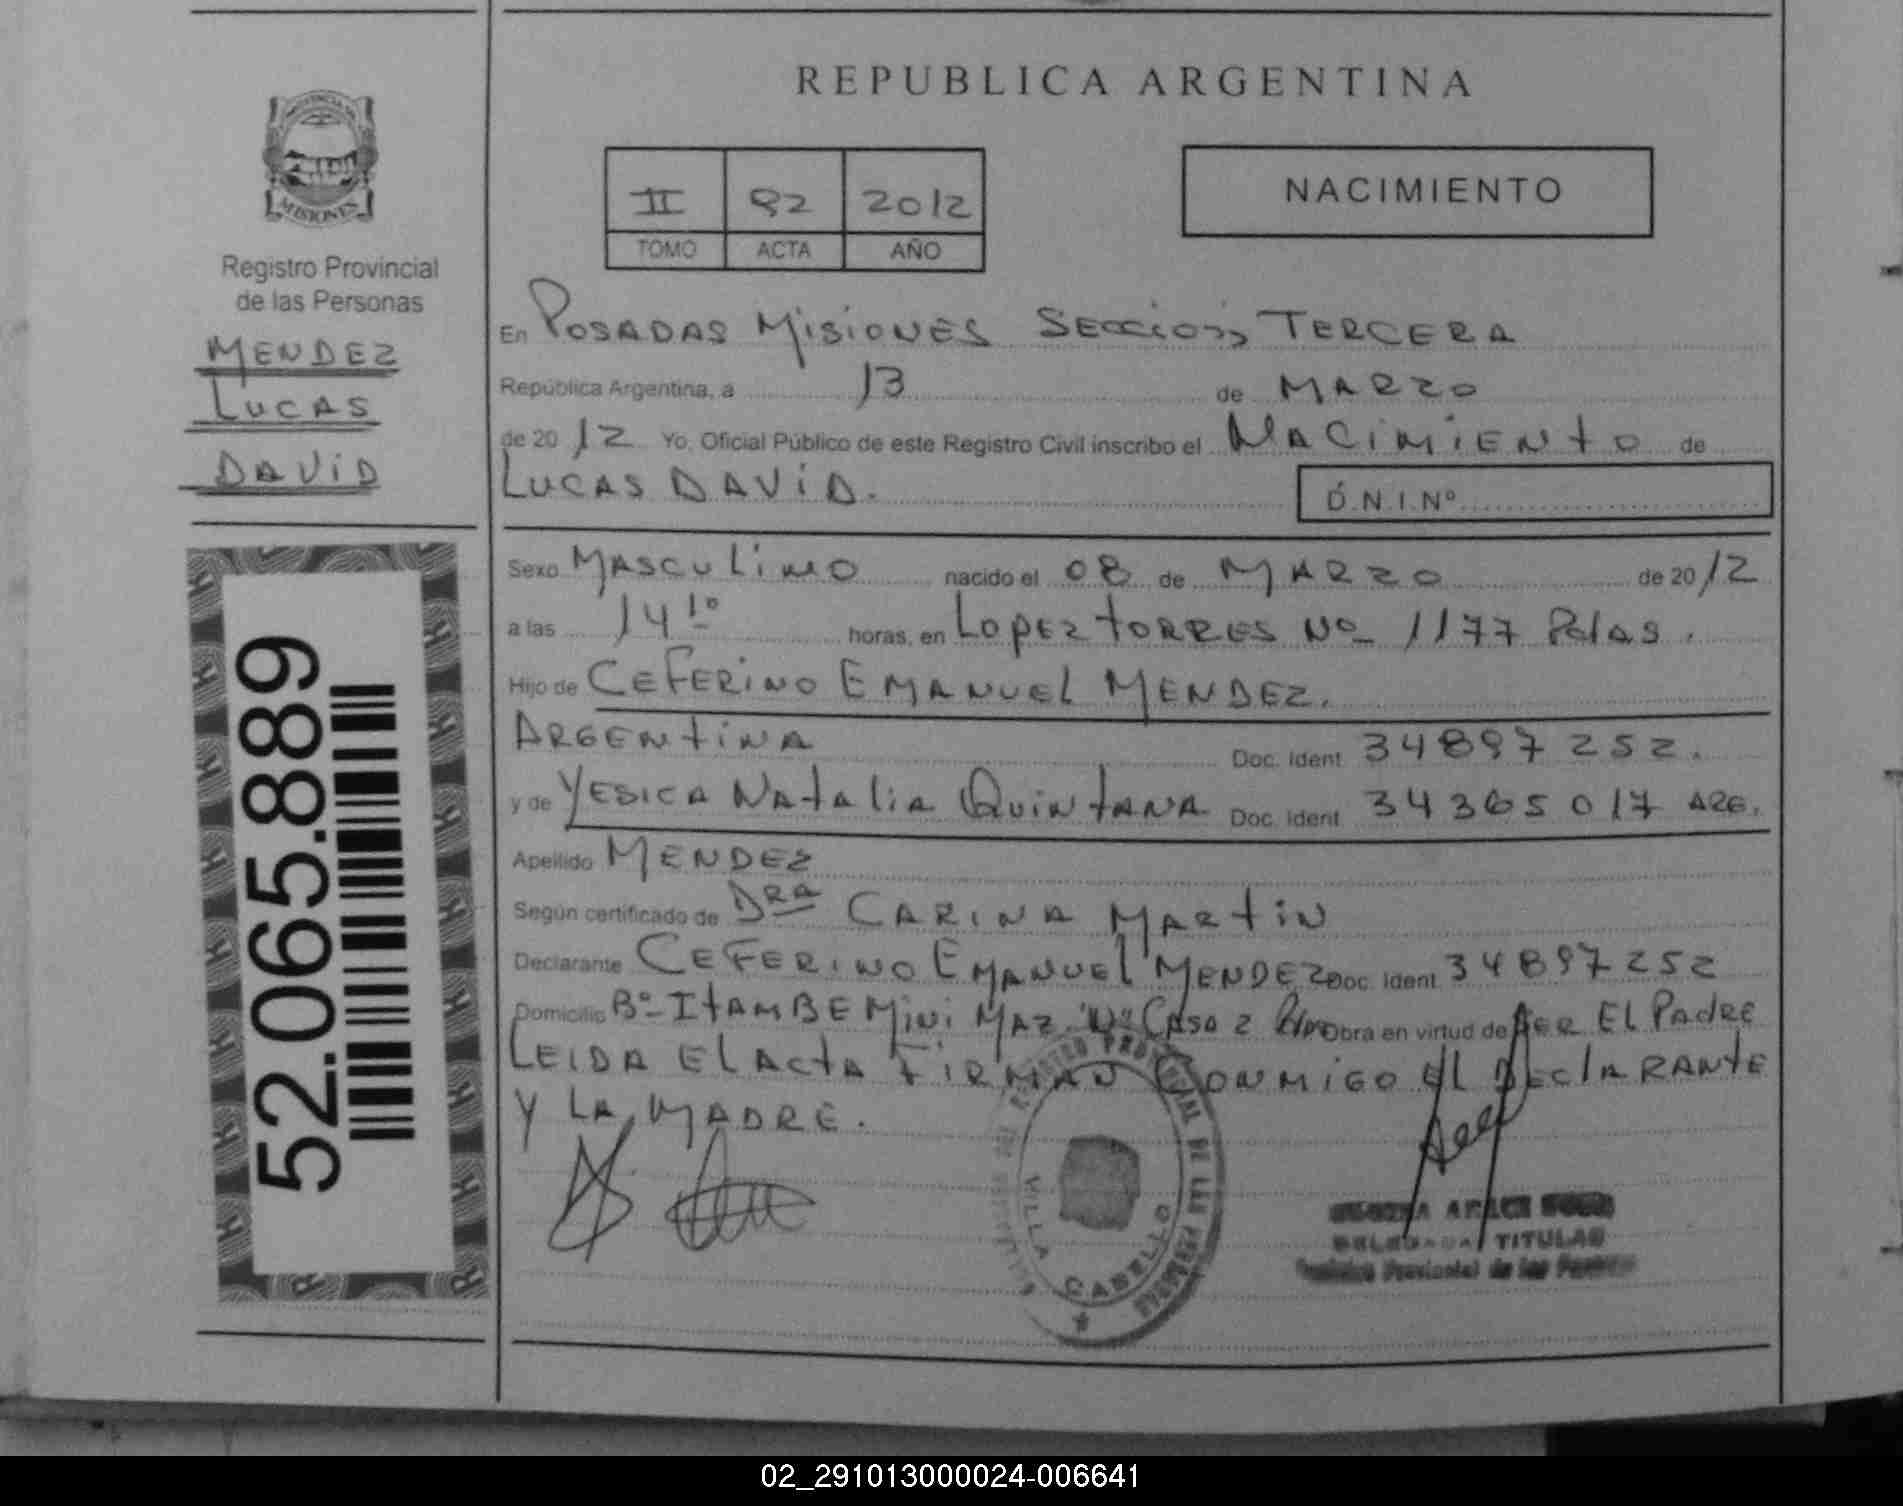 REPUBLICA ARGENTINA
PROVINCIA DE
MISIONES
Registro Provincial
de las Personas
MENDEZ
LUCAS
DAVID
52.065.889
II 92 2012
TOMO ACTA AÑO
NACIMIENTO
En POSADAS MISIONES SECCION TERCERA
República Argentina, a 13 de MARZO
de 2012 Yo, Oficial Público de este Registro Civil inscribo el NACIMIENTO de
LUCAS DAVID. D.N.I.Nº
Sexo MASCULINO nacido el 08 de MARZO de 2012
a las 14 10 horas, en LOPEZ TORRES Nº 1177 Pdas.
Hijo de CEFERINO EMANUEL MENDEZ.
ARGENTINA Doc. Ident. 34897252.
y de YESICA NATALIA QUINTANA Doc. Ident. 34365017 ARG.
Apellido MENDEZ
Según certificado de DRA CARINA MARTIN
Declarante CEFERINO EMANUEL MENDEZ Doc. Ident. 34897252
Domicilio Bº ITAMBE MINI MAZ. CASA 2 Obra en virtud de SER EL PADRE
LEIDA EL ACTA FIRMAN CONMIGO EL DECLARANTE
Y LA MADRE.
REGISTRO PROVINCIAL DE LAS PERSONAS
VILLA CABELLO
TITULAR
Registro Provincial de las Personas
02_291013000024-006641